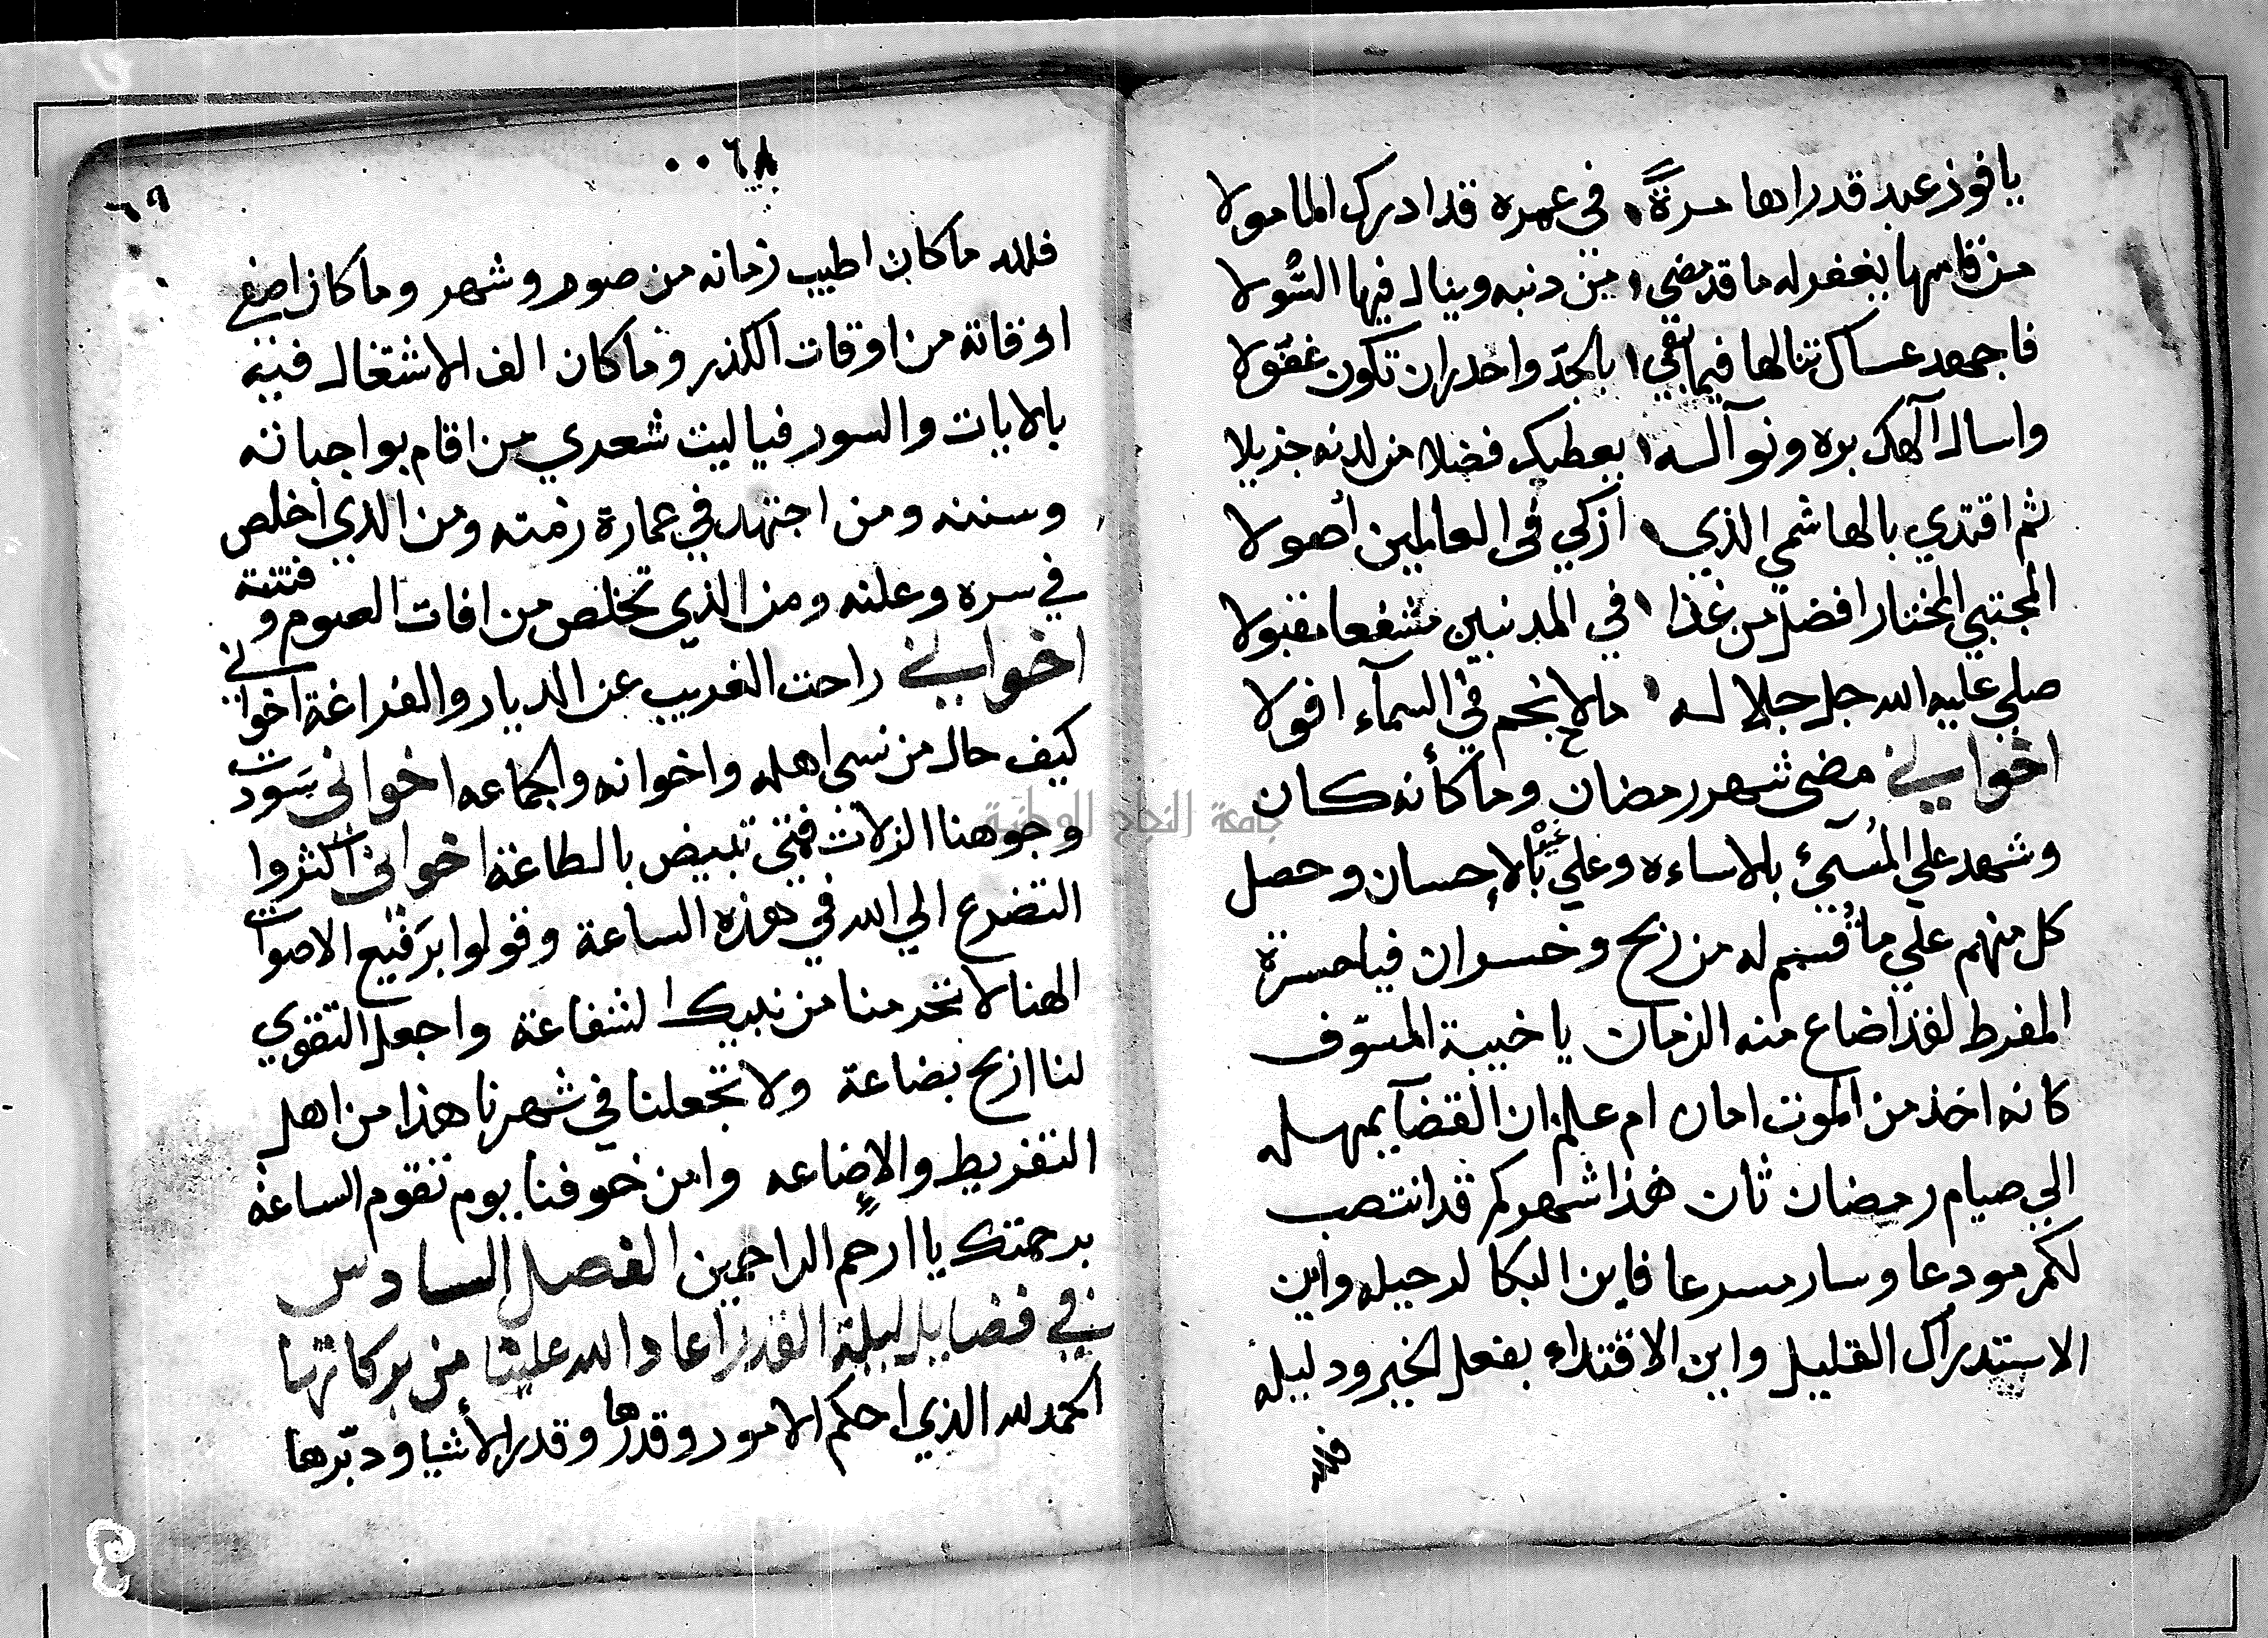 يا فوز عبد قد راها مرةً في عمره قد ادرك المامولا
من قامها يغفر له ما قد مضي من دنبه وينال فيها السُولا
فاجهد عساك تنالها فيما بقي بالجدّ واحدر ان تكون غفولا
واسال آلهك بره ونوآله يعطيك فضلا من لدنه جزيلا
ثم اقتدي بالهاشمي الذي ازكي في العالمين اصولا
المجتبي المختار افضل من غدا في المدنبين مشفعا مقبولا
صلي عليه الله جل جلاله ما لاح نجم في السمآء افولا
اخواني مضى شهر رمضان وما كأنه كان
وشهد علي المُسيئ بالاساءه وعلي بالإحسان وحصل
كل منهم علي ما قُسم له من ربح وخسران فيا حسرة
المفرط لقد اضاع منه الزمان يا خيبة المسوّف
كانه اخذ من الموت امان ام علم ان القضآ يمهله
الي صيام رمضان ثان هذا شهركم قد انتصب
لكم مودعا وسار مسرعا فاين البكا لرحيله واين
الاستدراك القليل واين الاقتداء بفعل الخير ودليله
فلله
٠٠٦٨
٦٩
فلله ما كان اطيب زمانه من صوم وشهر وما كان اصفي
اوقاته من اوقات الكدر وما كان الف الاشتغال فيه
بالايات والسور فيا ليت شعري من اقام بواجباته
وسننه ومن اجتهد في عمارة زمنه ومن الذي اخلص
في سره وعلنه ومن الذي تخلص من افات الصوم وفتنته
اخواني راحت الغريب عن الديار والفراغة اخواني
كيف حال من نسى اهله واخوانه والجماعه اخواني سَودت
وجوهنا الزلات فمتى تبيض بالطاعة اخواني اكثروا
التضرع الي الله في هذه الساعة وقولوا برَفيع الاصوات
الهنا لا تحرمنا من نبيك الشفاعة واجعل التقوي
لنا اربح بضاعة ولا تجعلنا في شهرنا هذا من اهل
التفريط والإضاعه وامن خوفنا يوم تقوم الساعة
برحمتك يا ارحم الراحمين الفصل السادس
في فضايل ليلة القدر اعاد الله علينا من بركاتها
الحمد لله الذي احكم الامور وقدرها وقدر الأشيا ودبّرها
جامعة النجاح الوطنية